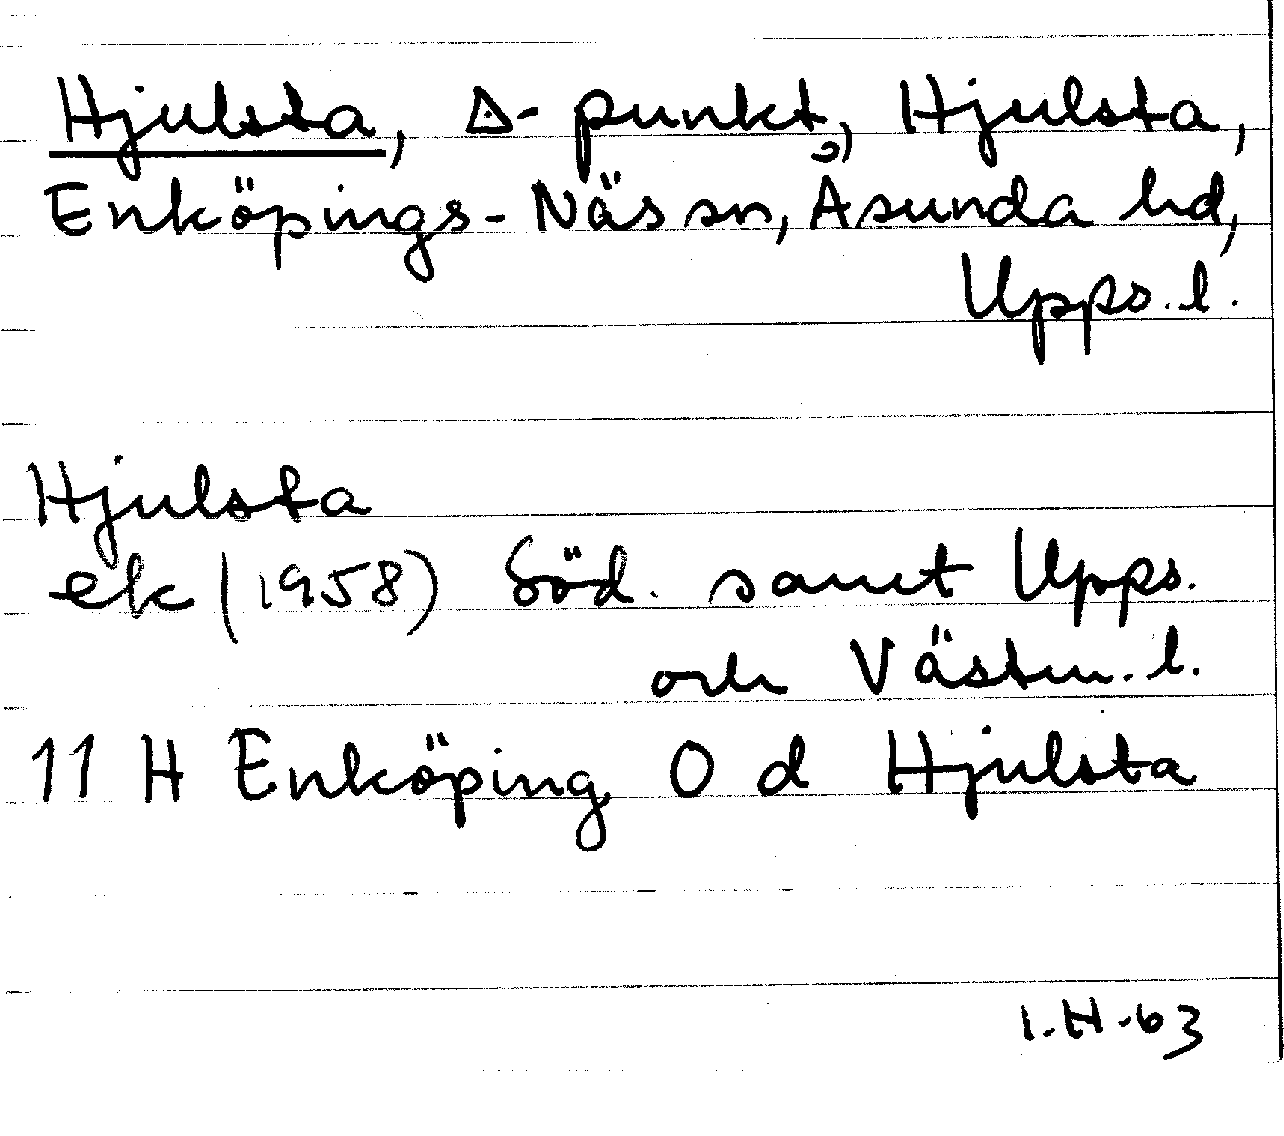 Hjulsta, Δ-punkt, Hjulsta,
Enköpings-Näs sn, Åsunda hd,
Upps. l.
Hjulsta
ek (1958) Söd. samt Upps.
och Västm. l.
11 H Enköping 0 d Hjulsta
I.H. 63